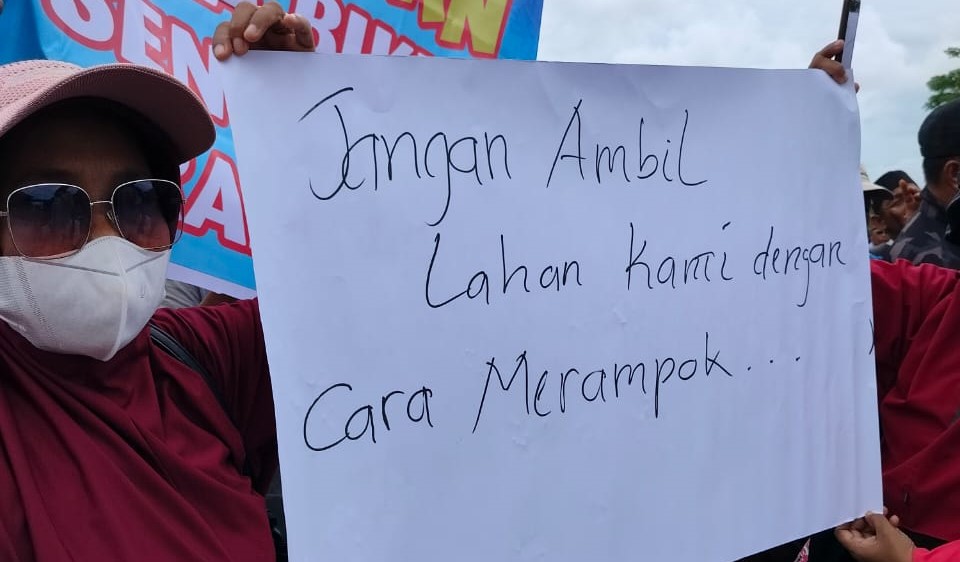 Jangan Ambil
Lahan Kami dengan
Cara Merampok...